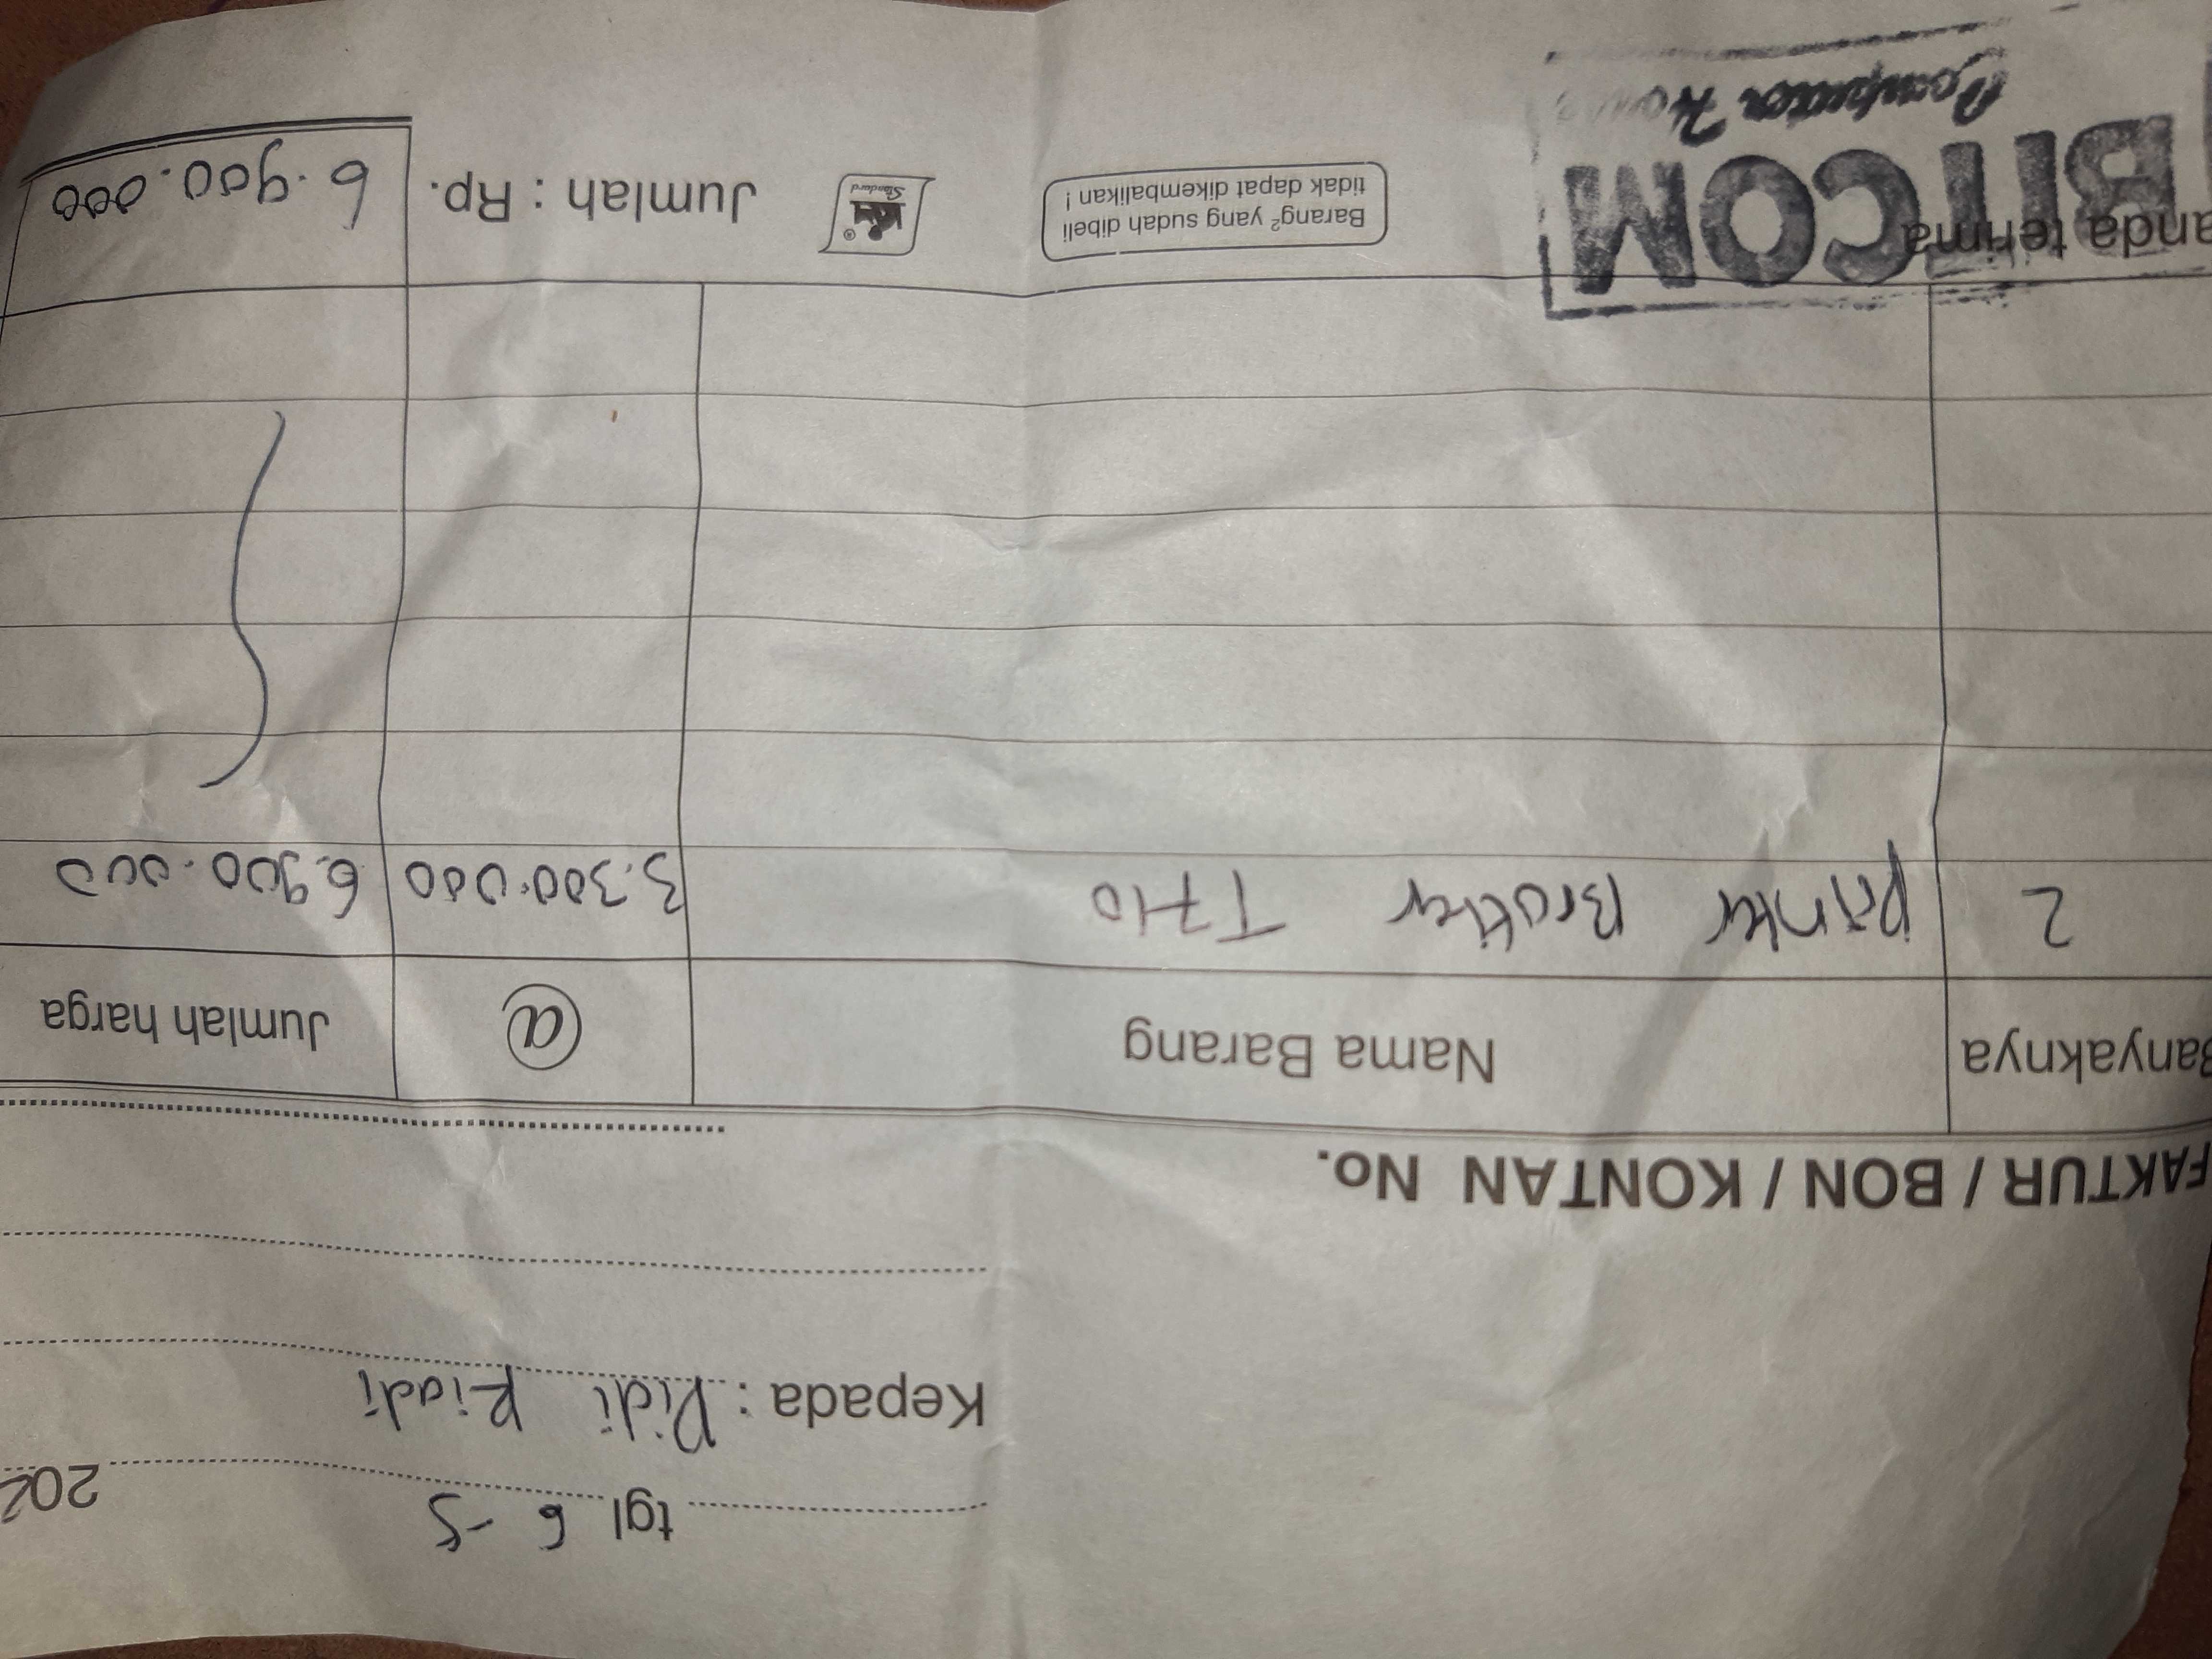 tgl. 6 - 5 202
Kepada : Didi Riadi
FAKTUR / BON / KONTAN No.
Banyaknya Nama Barang @ Jumlah harga
2 Printer Brother T710 3.300.000 6.900.000
anda terima
BITCOM
Computer House
Barang² yang sudah dibeli
tidak dapat dikembalikan !
KIKY®
Standard
Jumlah : Rp. 6.900.000